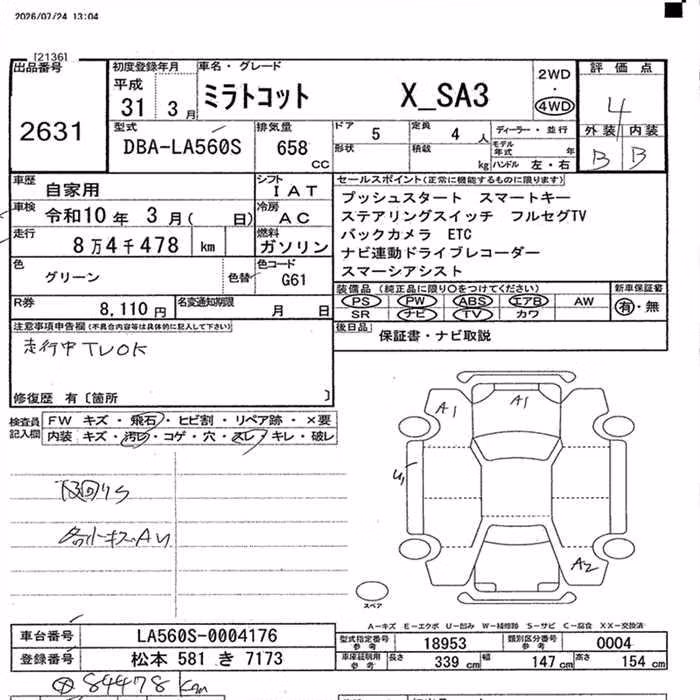 2026/07/24 13:04
[2136]
出品番号 2631
初度登録年月 平成 31 3月
車名・グレード ミラトコット X_SA3
2WD ・ 4WD
評価点 4
外装 内装
B B
型式 DBA-LA560S
排気量 658 CC
ドア 5
定員 4 人
ディーラー・並行
形状
積載 kg
モデル年式 年
ハンドル 左・右
車歴 自家用
シフト IAT
車検 令和10年 3月( 日)
冷房 AC
走行 8万4千478 km
燃料 ガソリン
色 グリーン
色替
色コード G61
R券 8,110円
名変通知期限 月 日
セールスポイント(正常に機能するものに限ります)
プッシュスタート スマートキー
ステアリングスイッチ フルセグTV
バックカメラ ETC
ナビ連動ドライブレコーダー
スマーシアシスト
装備品 (純正品に限り○をつけてください)
新車保証書
PS PW ABS エアB AW
有・無
SR ナビ TV カワ
後日品 保証書・ナビ取説
注意事項申告欄(不具合内容等は具体的に記入して下さい)
走行中TVOK
修復歴 有〔箇所 〕
検査員記入欄
FW キズ・飛石・ヒビ割・リペア跡・×要
内装 キズ・汚レ・コゲ・穴・スレ・キレ・破レ
A1
A1
U1
A2
スペア
A-キズ E-エクボ U-凹み W-補修跡 S-サビ C-腐食 XX-交換済
車台番号 LA560S-0004176
登録番号 松本 581 き 7173
型式指定番号参考 18953
類別区分番号参考 0004
車庫証明用参考 長さ 339 cm 幅 147 cm 高さ 154 cm
84478 km